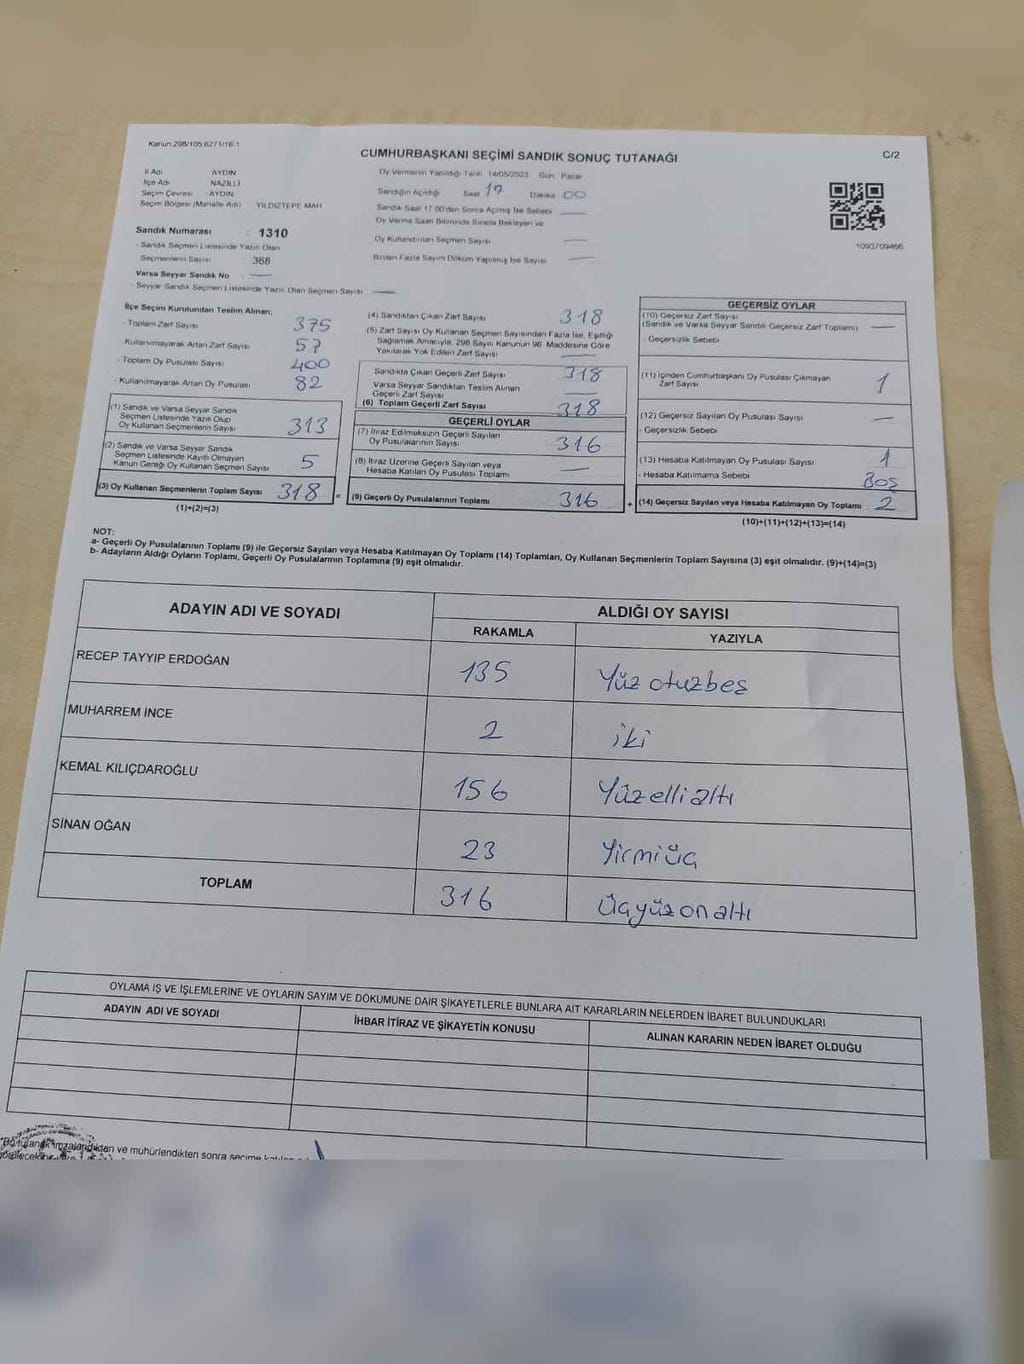 Kanun:298/105,6271/18-1
CUMHURBAŞKANI SEÇİMİ SANDIK SONUÇ TUTANAĞI
C/2
İl Adı AYDIN
İlçe Adı NAZİLLİ
Seçim Çevresi : AYDIN
Seçim Bölgesi (Mahalle Adı) YILDIZTEPE MAH
Sandık Numarası : 1310
- Sandık Seçmen Listesinde Yazılı Olan
Seçmenlerin Sayısı : 368
Varsa Seyyar Sandık No : —
- Seyyar Sandık Seçmen Listesinde Yazılı Olan Seçmen Sayısı —
Oy Vermenin Yapıldığı Tarih 14/05/2023 Gün Pazar
Sandığın Açıldığı Saat 17 Dakika 00
Sandık Saat 17.00'den Sonra Açılmış İse Sebebi —
Oy Verme Saati Bitiminde Sırada Bekleyen ve
Oy Kullandırılan Seçmen Sayısı —
Birden Fazla Sayım Döküm Yapılmış İse Sayısı —
1093709466
İlçe Seçim Kurulundan Teslim Alınan;
- Toplam Zarf Sayısı 375
- Kullanılmayarak Artan Zarf Sayısı 57
- Toplam Oy Pusulası Sayısı 400
- Kullanılmayarak Artan Oy Pusulası 82
(1) Sandık ve Varsa Seyyar Sandık
Seçmen Listesinde Yazılı Olup
Oy Kullanan Seçmenlerin Sayısı 313
(2) Sandık ve Varsa Seyyar Sandık
Seçmen Listesinde Kayıtlı Olmayan
Kanun Gereği Oy Kullanan Seçmen Sayısı 5
(3) Oy Kullanan Seçmenlerin Toplam Sayısı 318 =
(1)+(2)=(3)
(4) Sandıktan Çıkan Zarf Sayısı 318
(5) Zarf Sayısı Oy Kullanan Seçmen Sayısından Fazla İse, Eşitliği
Sağlamak Amacıyla, 298 Sayılı Kanunun 98. Maddesine Göre
Yakılarak Yok Edilen Zarf Sayısı —
Sandıkta Çıkan Geçerli Zarf Sayısı 318
Varsa Seyyar Sandıktan Teslim Alınan
Geçerli Zarf Sayısı —
(6) Toplam Geçerli Zarf Sayısı 318
GEÇERLİ OYLAR
(7) İtiraz Edilmeksizin Geçerli Sayılan
Oy Pusulalarının Sayısı 316
(8) İtiraz Üzerine Geçerli Sayılan veya
Hesaba Katılan Oy Pusulası Toplamı —
(9) Geçerli Oy Pusulalarının Toplamı 316 +
GEÇERSİZ OYLAR
(10) Geçersiz Zarf Sayısı
(Sandık ve Varsa Seyyar Sandık Geçersiz Zarf Toplamı) —
- Geçersizlik Sebebi
(11) İçinden Cumhurbaşkanı Oy Pusulası Çıkmayan
Zarf Sayısı 1
(12) Geçersiz Sayılan Oy Pusulası Sayısı —
- Geçersizlik Sebebi
(13) Hesaba Katılmayan Oy Pusulası Sayısı 1
- Hesaba Katılmama Sebebi Boş
(14) Geçersiz Sayılan veya Hesaba Katılmayan Oy Toplamı 2
(10)+(11)+(12)+(13)=(14)
NOT:
a- Geçerli Oy Pusulalarının Toplamı (9) ile Geçersiz Sayılan veya Hesaba Katılmayan Oy Toplamı (14) Toplamları, Oy Kullanan Seçmenlerin Toplam Sayısına (3) eşit olmalıdır. (9)+(14)=(3)
b- Adayların Aldığı Oyların Toplamı, Geçerli Oy Pusulalarının Toplamına (9) eşit olmalıdır.
ADAYIN ADI VE SOYADI ALDIĞI OY SAYISI
RAKAMLA YAZIYLA
RECEP TAYYİP ERDOĞAN 135 Yüz otuzbeş
MUHARREM İNCE 2 iki
KEMAL KILIÇDAROĞLU 156 Yüzellialtı
SİNAN OĞAN 23 Yirmiüç
TOPLAM 316 Üçyüzonaltı
OYLAMA İŞ VE İŞLEMLERİNE VE OYLARIN SAYIM VE DÖKÜMÜNE DAİR ŞİKAYETLERLE BUNLARA AİT KARARLARIN NELERDEN İBARET BULUNDUKLARI
ADAYIN ADI VE SOYADI İHBAR İTİRAZ VE ŞİKAYETİN KONUSU ALINAN KARARIN NEDEN İBARET OLDUĞU
imzalandıktan ve mühürlendikten sonra seçime